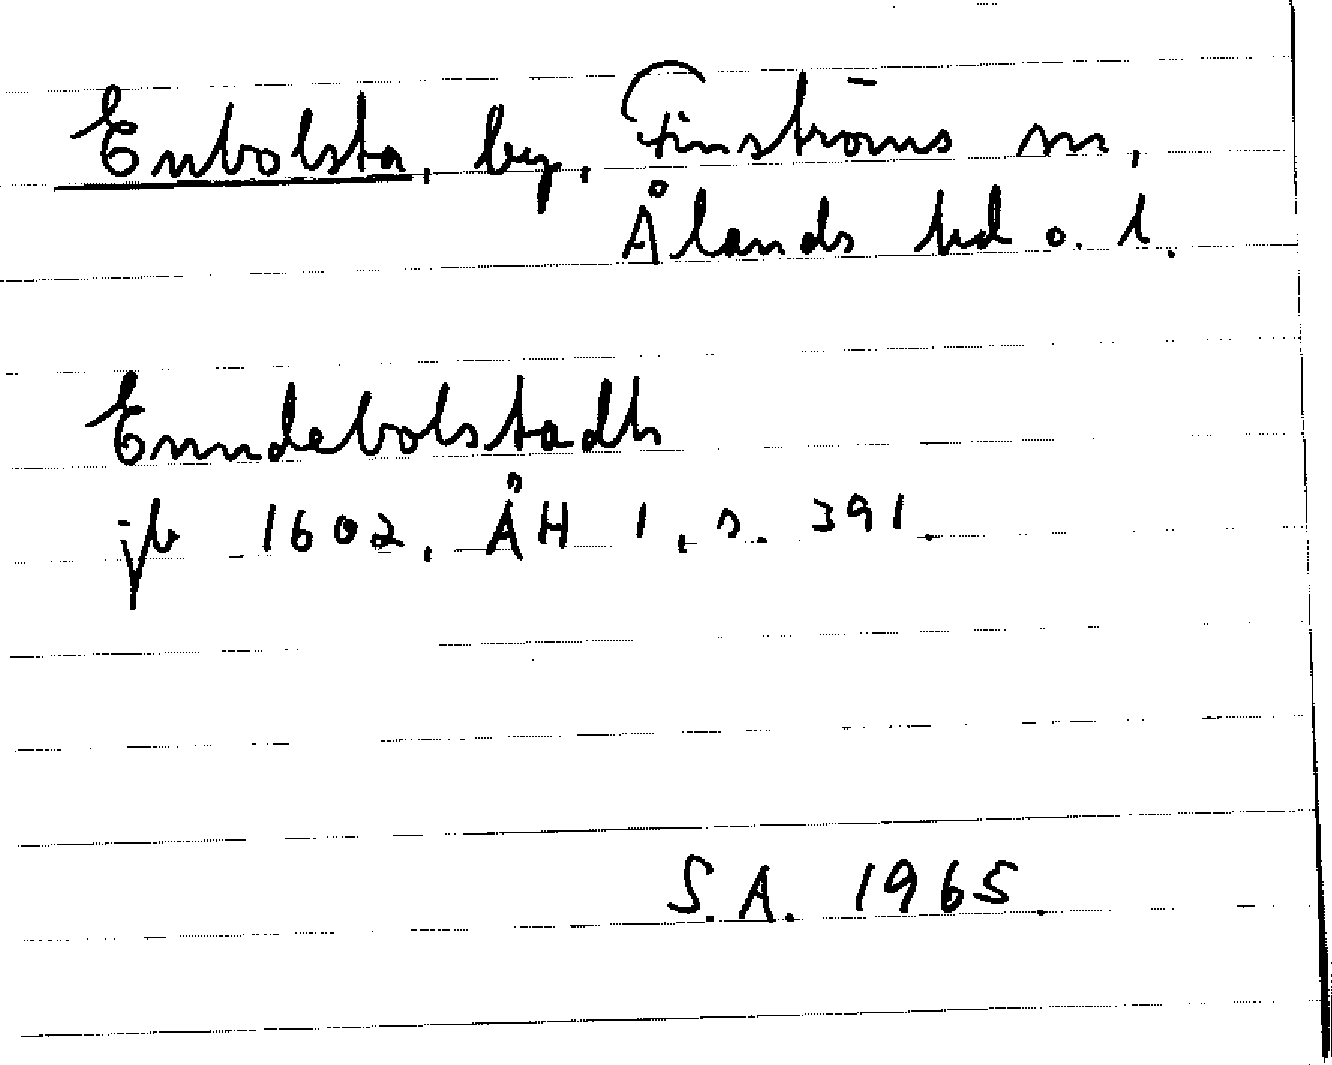 Enbolsta, by, Finströms sn,
Ålands hd o. l.
Enndebolstadh
jb 1602, ÅH 1, s. 391.
S.A. 1965.